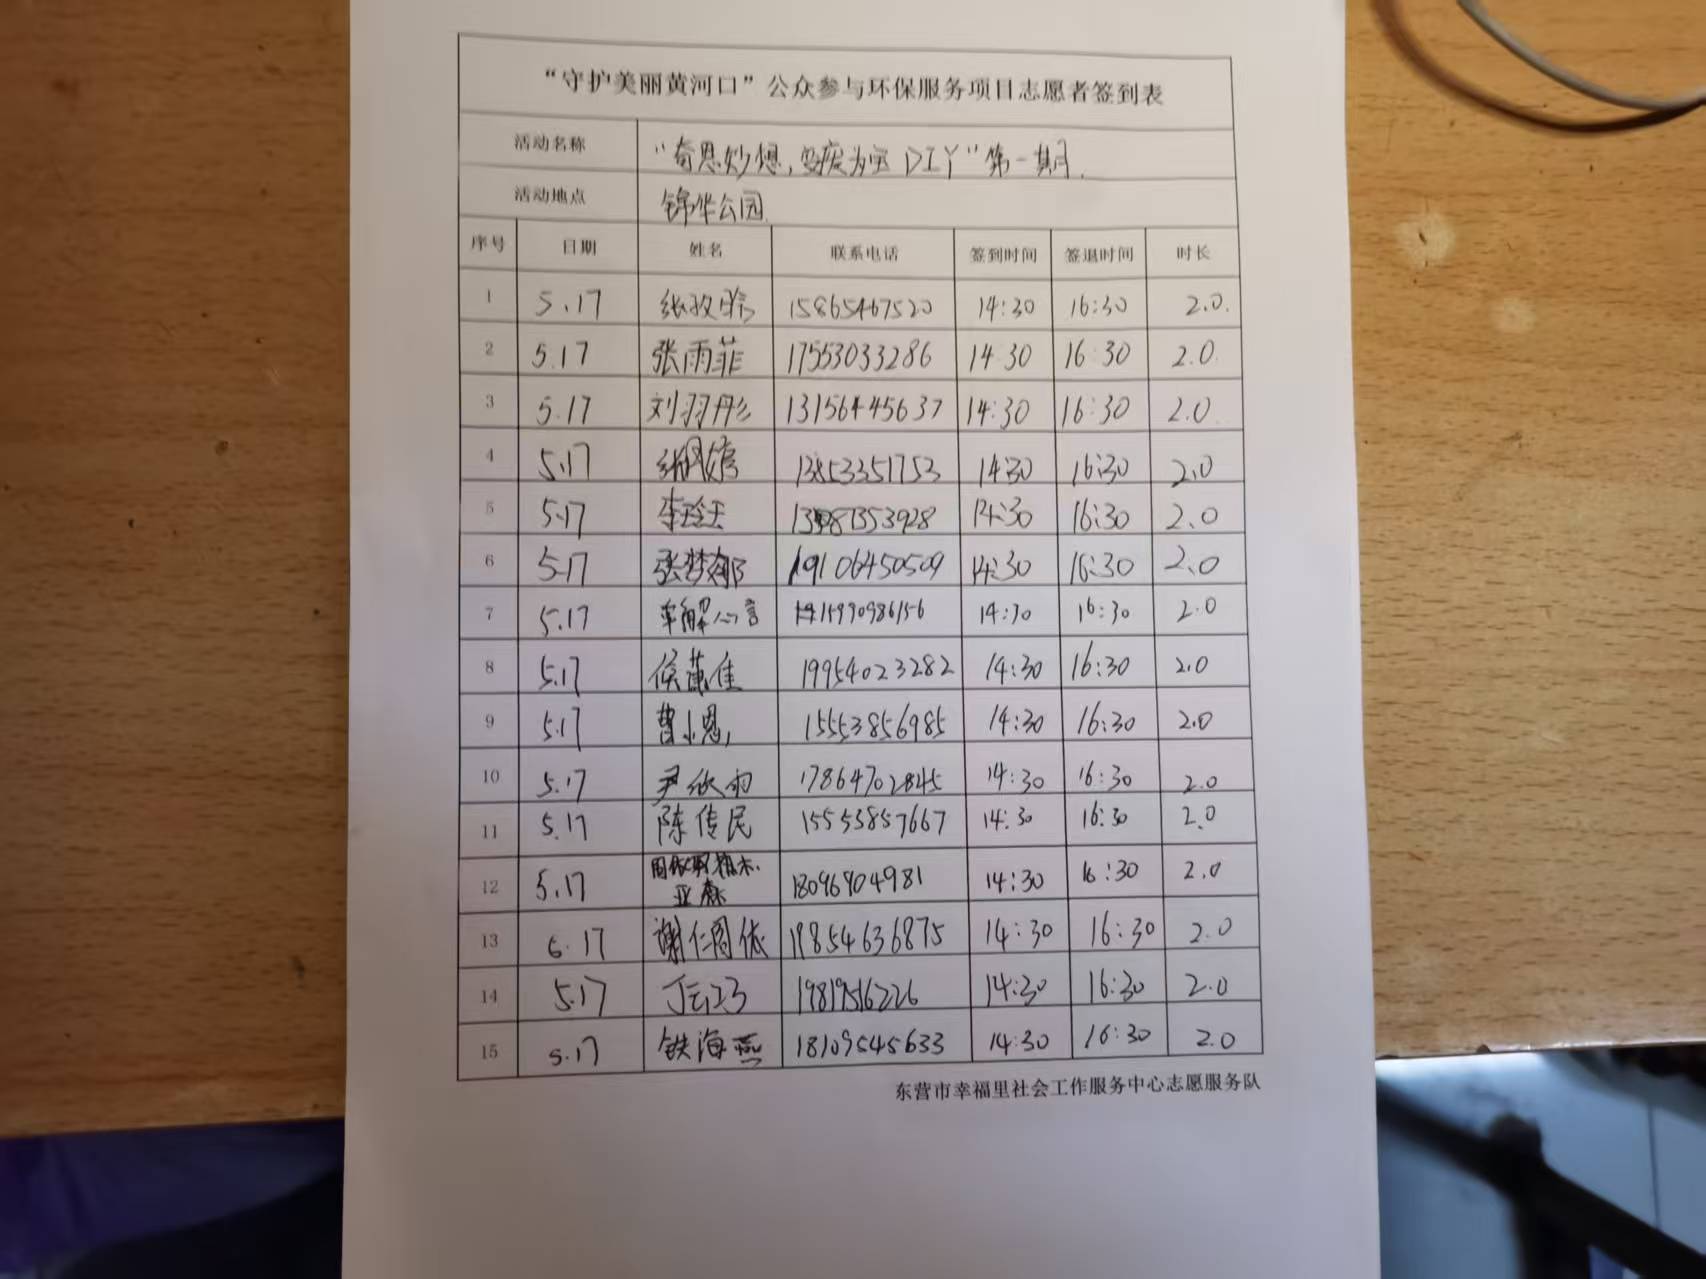 “守护美丽黄河口”公众参与环保服务项目志愿者签到表
活动名称 “奇思妙想,变废为宝DIY”第一期.
活动地点 锦华公园.
序号 日期 姓名 联系电话 签到时间 签退时间 时长
1 5.17 15865467520 14:30 16:30 2.0.
2 5.17 张雨菲 17553033286 14:30 16:30 2.0.
3 5.17 刘羽彤 13156445637 14:30 16:30 2.0.
4 5.17 13853351753 14:30 16:30 2.0
5 5.17 李玲玉 14:30 16:30 2.0
6 5.17 张梦郁 19106450509 14:30 16:30 2.0
7 5.17 15990986156 14:30 16:30 2.0
8 5.17 侯蕙佳 19954023282 14:30 16:30 2.0
9 5.17 曹小恩 15553856985 14:30 16:30 2.0
10 5.17 尹欣雨 17864702845 14:30 16:30 2.0
11 5.17 陈传民 15553857667 14:30 16:30 2.0
12 5.17 亚森 18096904981 14:30 16:30 2.0
13 6.17 谢仁阁依 19854636875 14:30 16:30 2.0
14 5.17 19819516226 14:30 16:30 2.0
15 5.17 铁海燕 18109545633 14:30 16:30 2.0
东营市幸福里社会工作服务中心志愿服务队